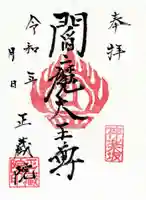 奉拝
閻魔大王尊
令和 年 月 日
正蔵院